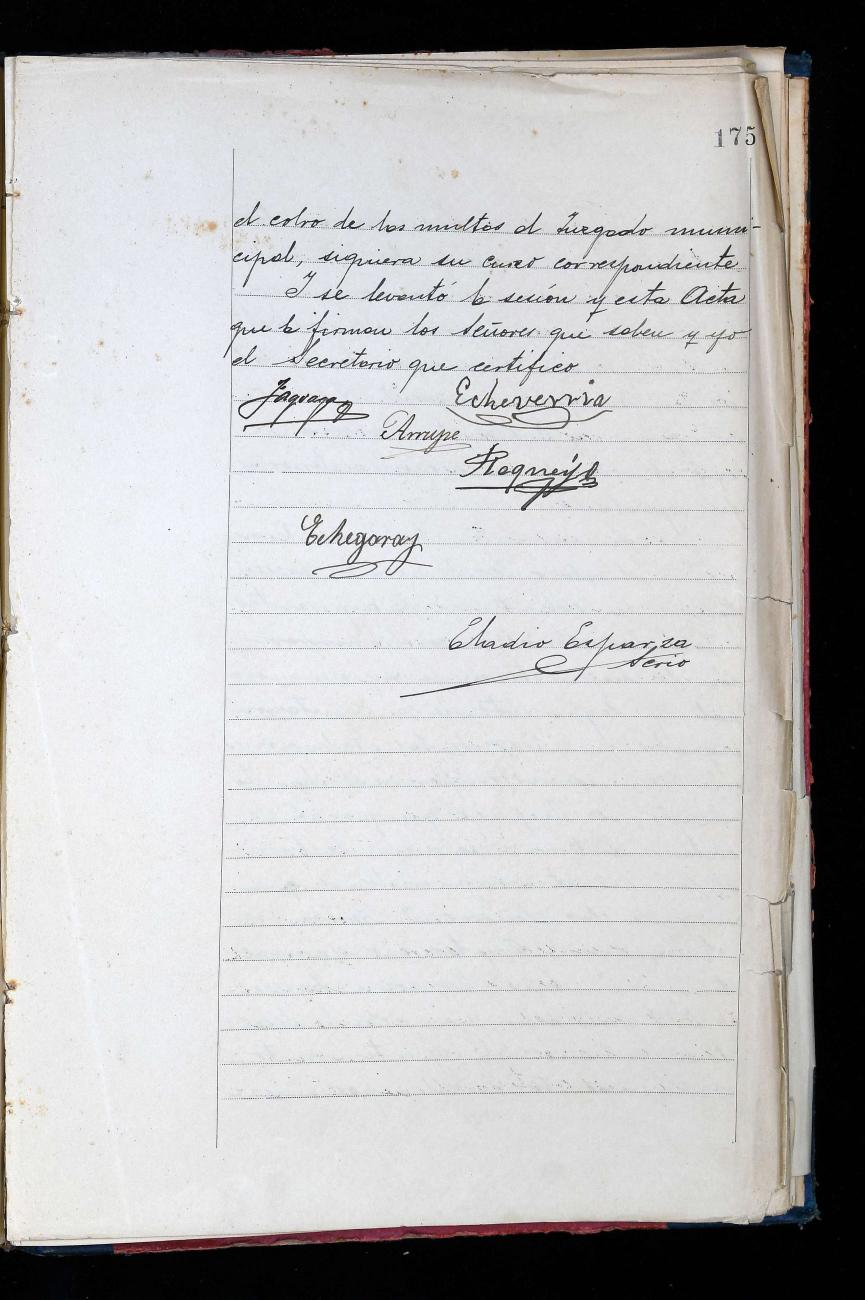 175
el cobro de las multas al Juzgado muni-
cipal, siguiera su curso correspondiente
Y se levantó la sesión y esta Acta
que la firman los Señores que saben y yo
el Secretario que certifico
Echeverria
Arrupe
Echegaray
Eladio Esparza
Serio